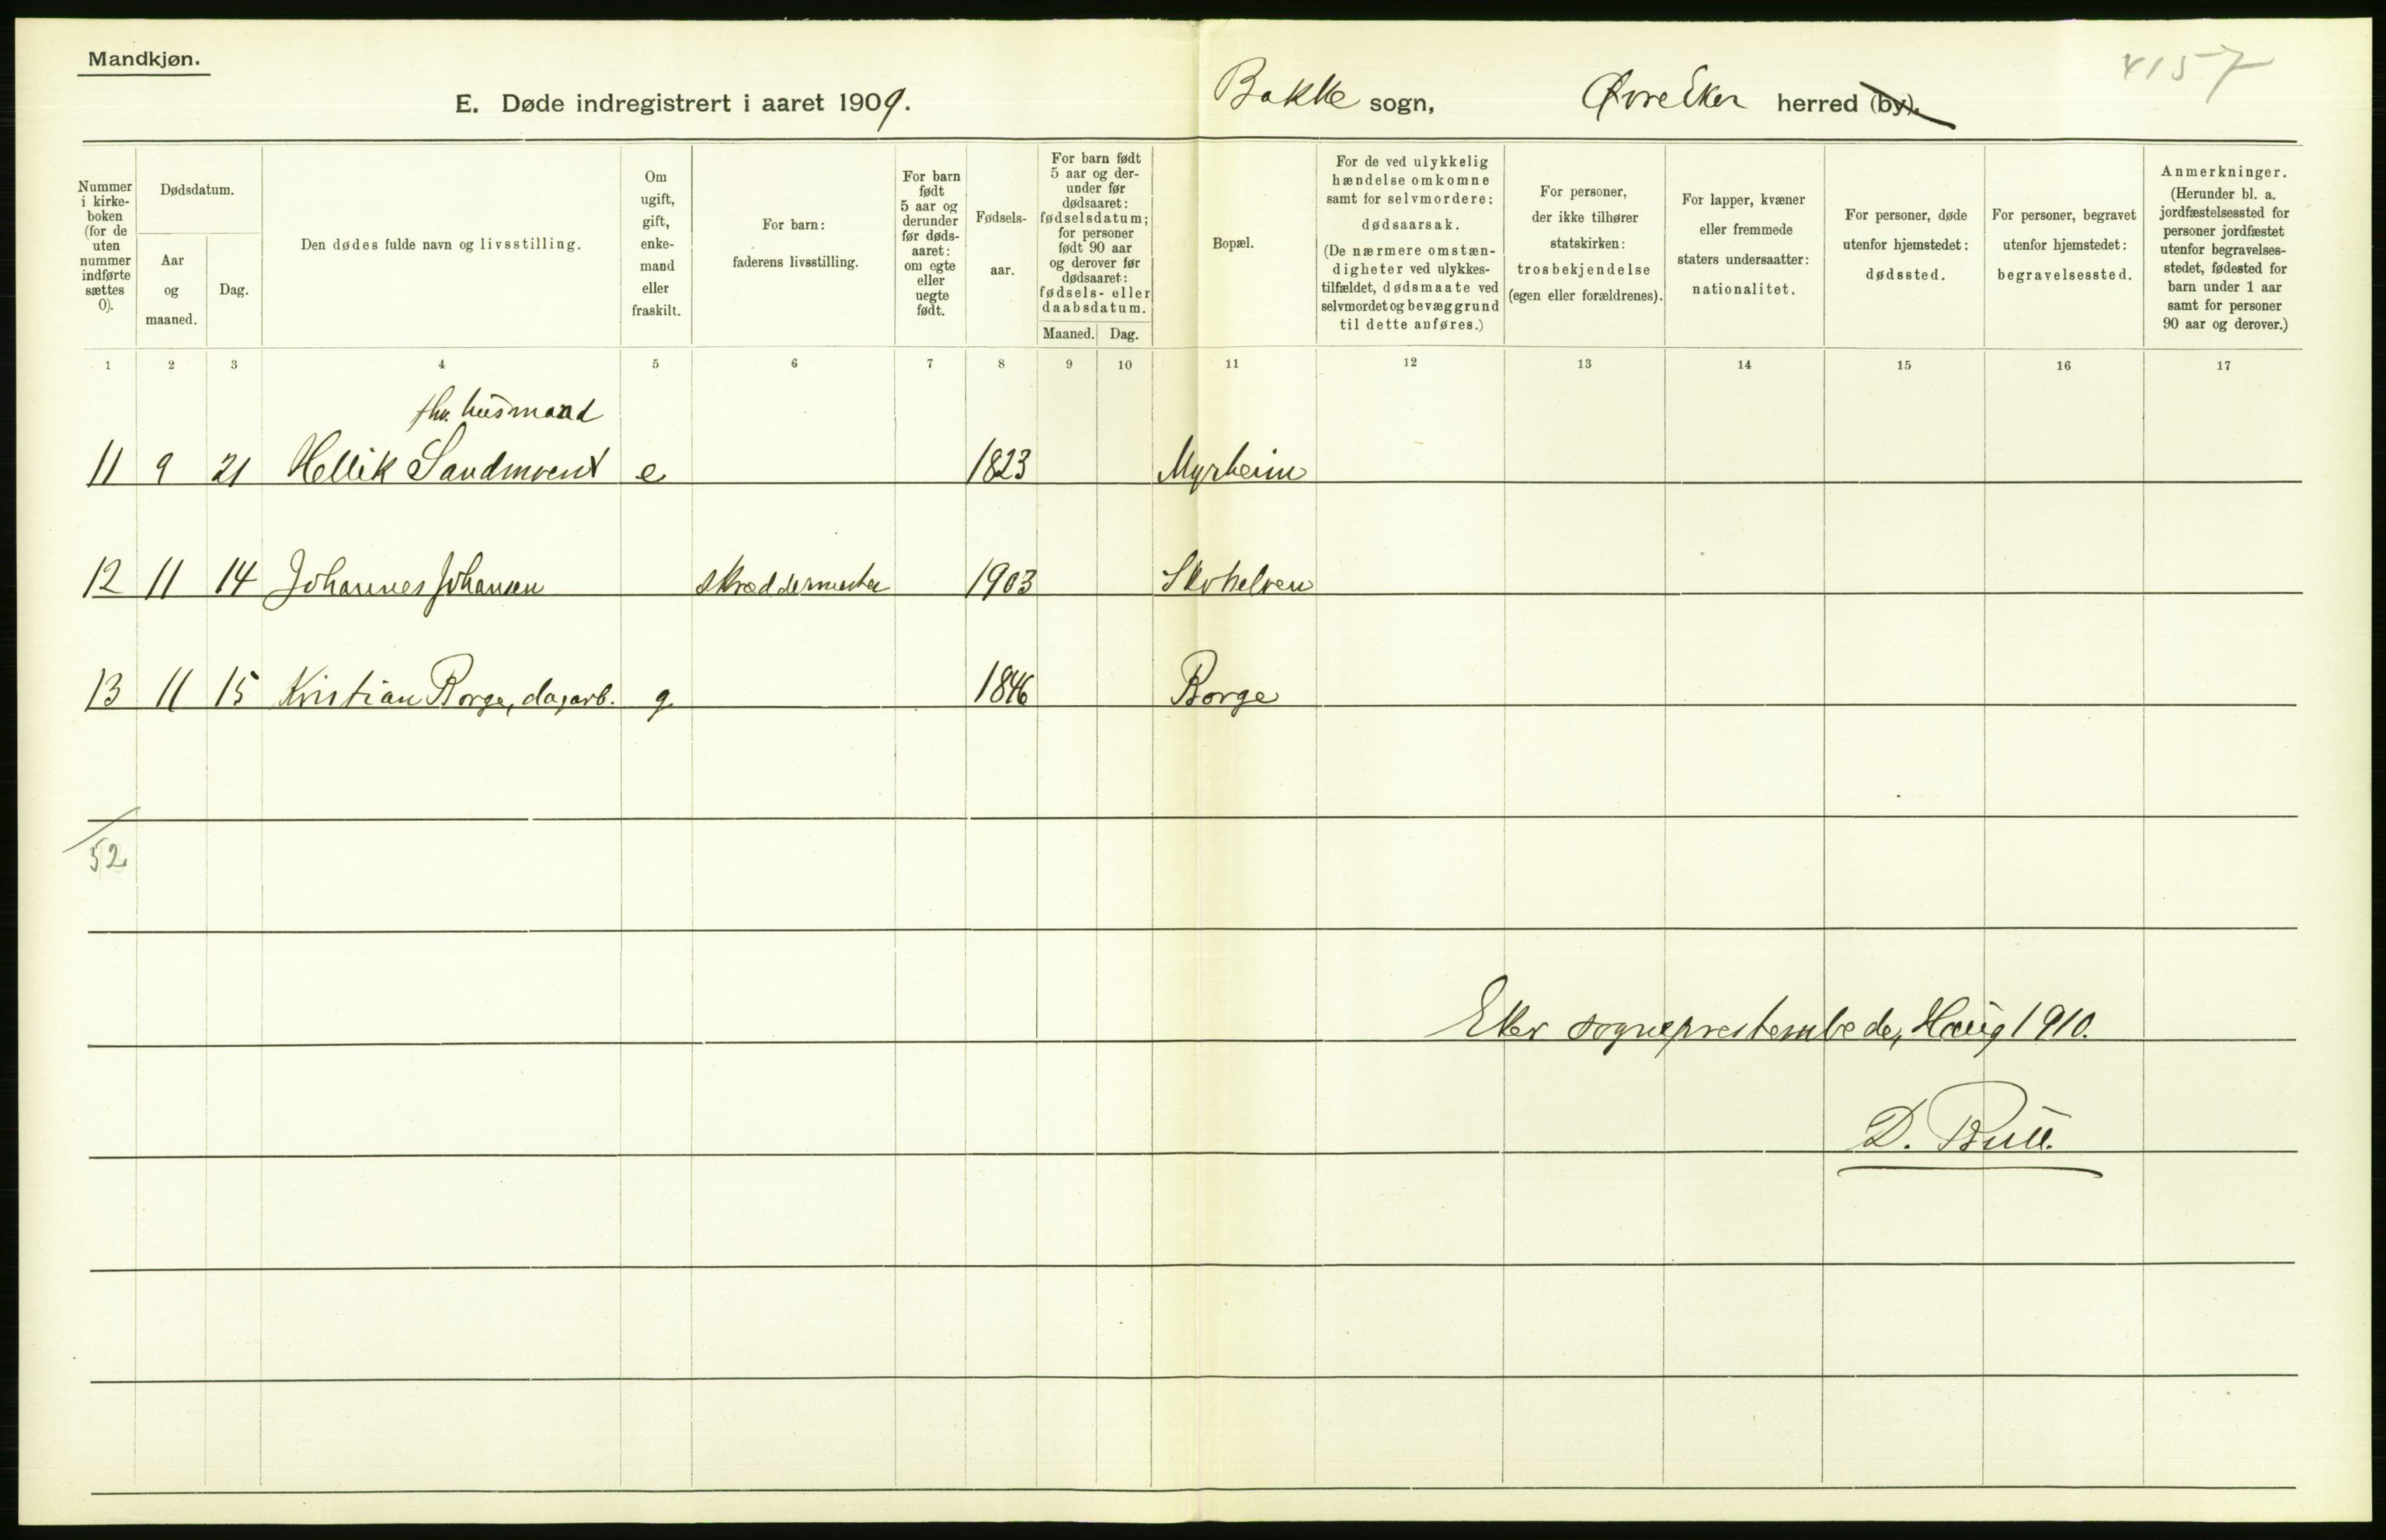 Mandkjøn.
4157
E. Døde indregistrert i aaret 1909.
Bakke sogn, Øvre Eker herred (by).
Nummer i kirke- boken (for de uten nummer indførte sættes 0).
Dødsdatum.
Aar og maaned.
Dag.
Den dødes fulde navn og livsstilling.
Om ugift, gift, enke- mand eller fraskilt.
For barn: faderens livsstilling.
For barn født 5 aar og derunder før døds- aaret: om egte eller uegte født.
Fødsels- aar.
For barn født 5 aar og der- under før dødsaaret: fødselsdatum; for personer født 90 aar og derover før dødsaaret: fødsels- eller daabsdatum.
Maaned. Dag.
Bopæl.
For de ved ulykkelig hændelse omkomne samt for selvmordere: dødsaarsak. (De nærmere omstæn- digheter ved ulykkes- tilfældet, dødsmaate ved selvmordet og bevæggrund til dette anføres.)
For personer, der ikke tilhører statskirken: trosbekjendelse (egen eller forældrenes).
For lapper, kvæner eller fremmede staters undersaatter: nationalitet.
For personer, døde utenfor hjemstedet: dødssted.
For personer, begravet utenfor hjemstedet: begravelsessted.
Anmerkninger. (Herunder bl. a. jordfæstelsessted for personer jordfæstet utenfor begravelses- stedet, fødested for barn under 1 aar samt for personer 90 aar og derover.)
1 2 3 4 5 6 7 8 9 10 11 12 13 14 15 16 17
fhv. husmand
11 9 21 Hellik Sandmoent e 1823 Myrheim
12 11 14 Johannes Johansen skræddermester 1903 Skotselven
13 11 15 Kristian Borge, dagarb. g 1846 Borge
52
Eker sogneprestembede, Haug 1910.
D. Bull.